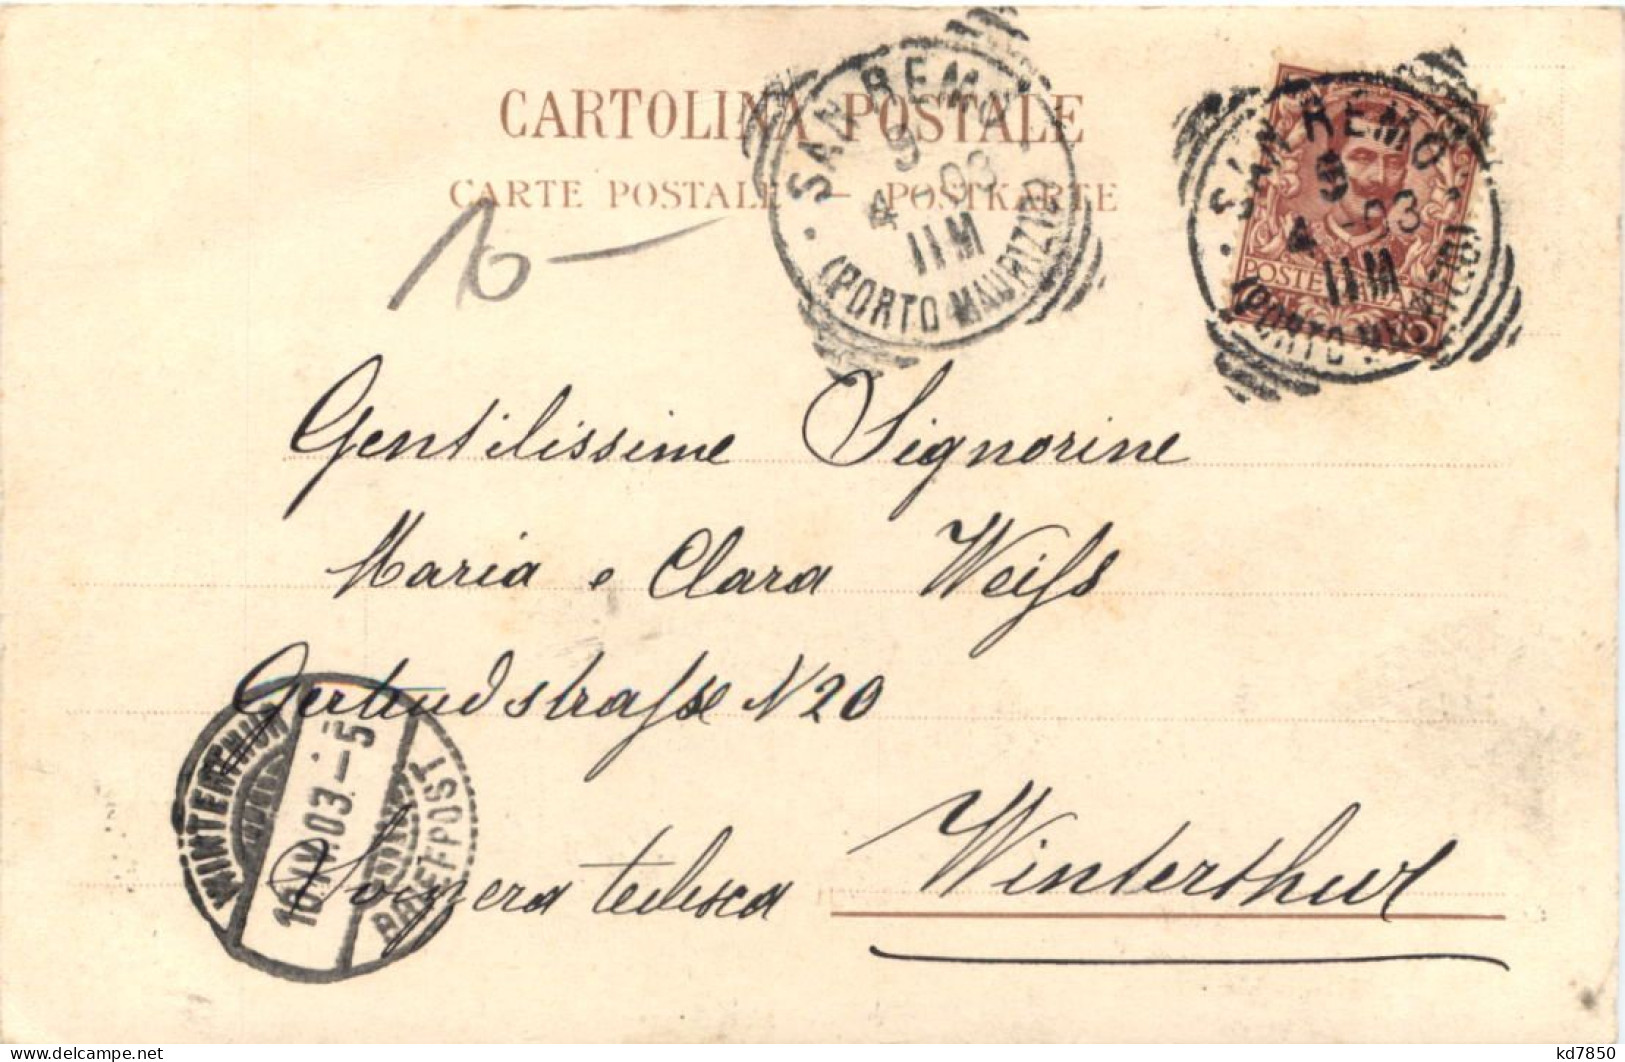 CARTOLINA POSTALE
CARTE POSTALE — POSTKARTE
10 —
SAN REMO
9
4 - 03
11M
(PORTO MAURIZIO)
SAN REMO
9
4 - 03
11M
(PORTO MAURIZIO)
POSTE ITALIANE
Gentilissime Signorine
Maria e Clara Weiſs
Gertrudstraſse N 20
Winterthur
Svizzera tedesca
WINTERTHUR
10.IV.03.-5
BRIEFPOST
kd7850